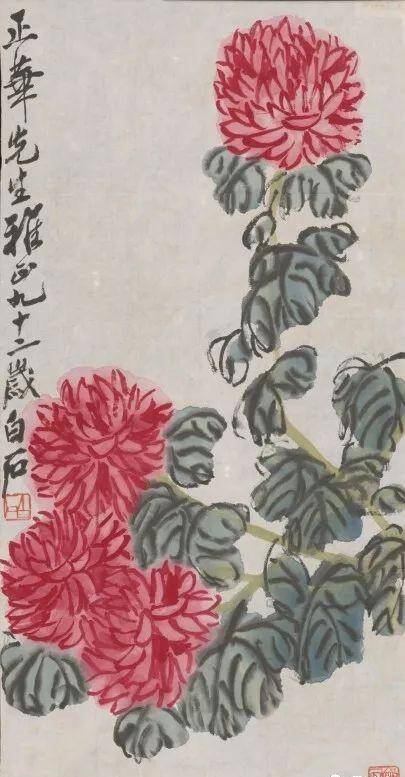 正華先生雅正九十二歲白石